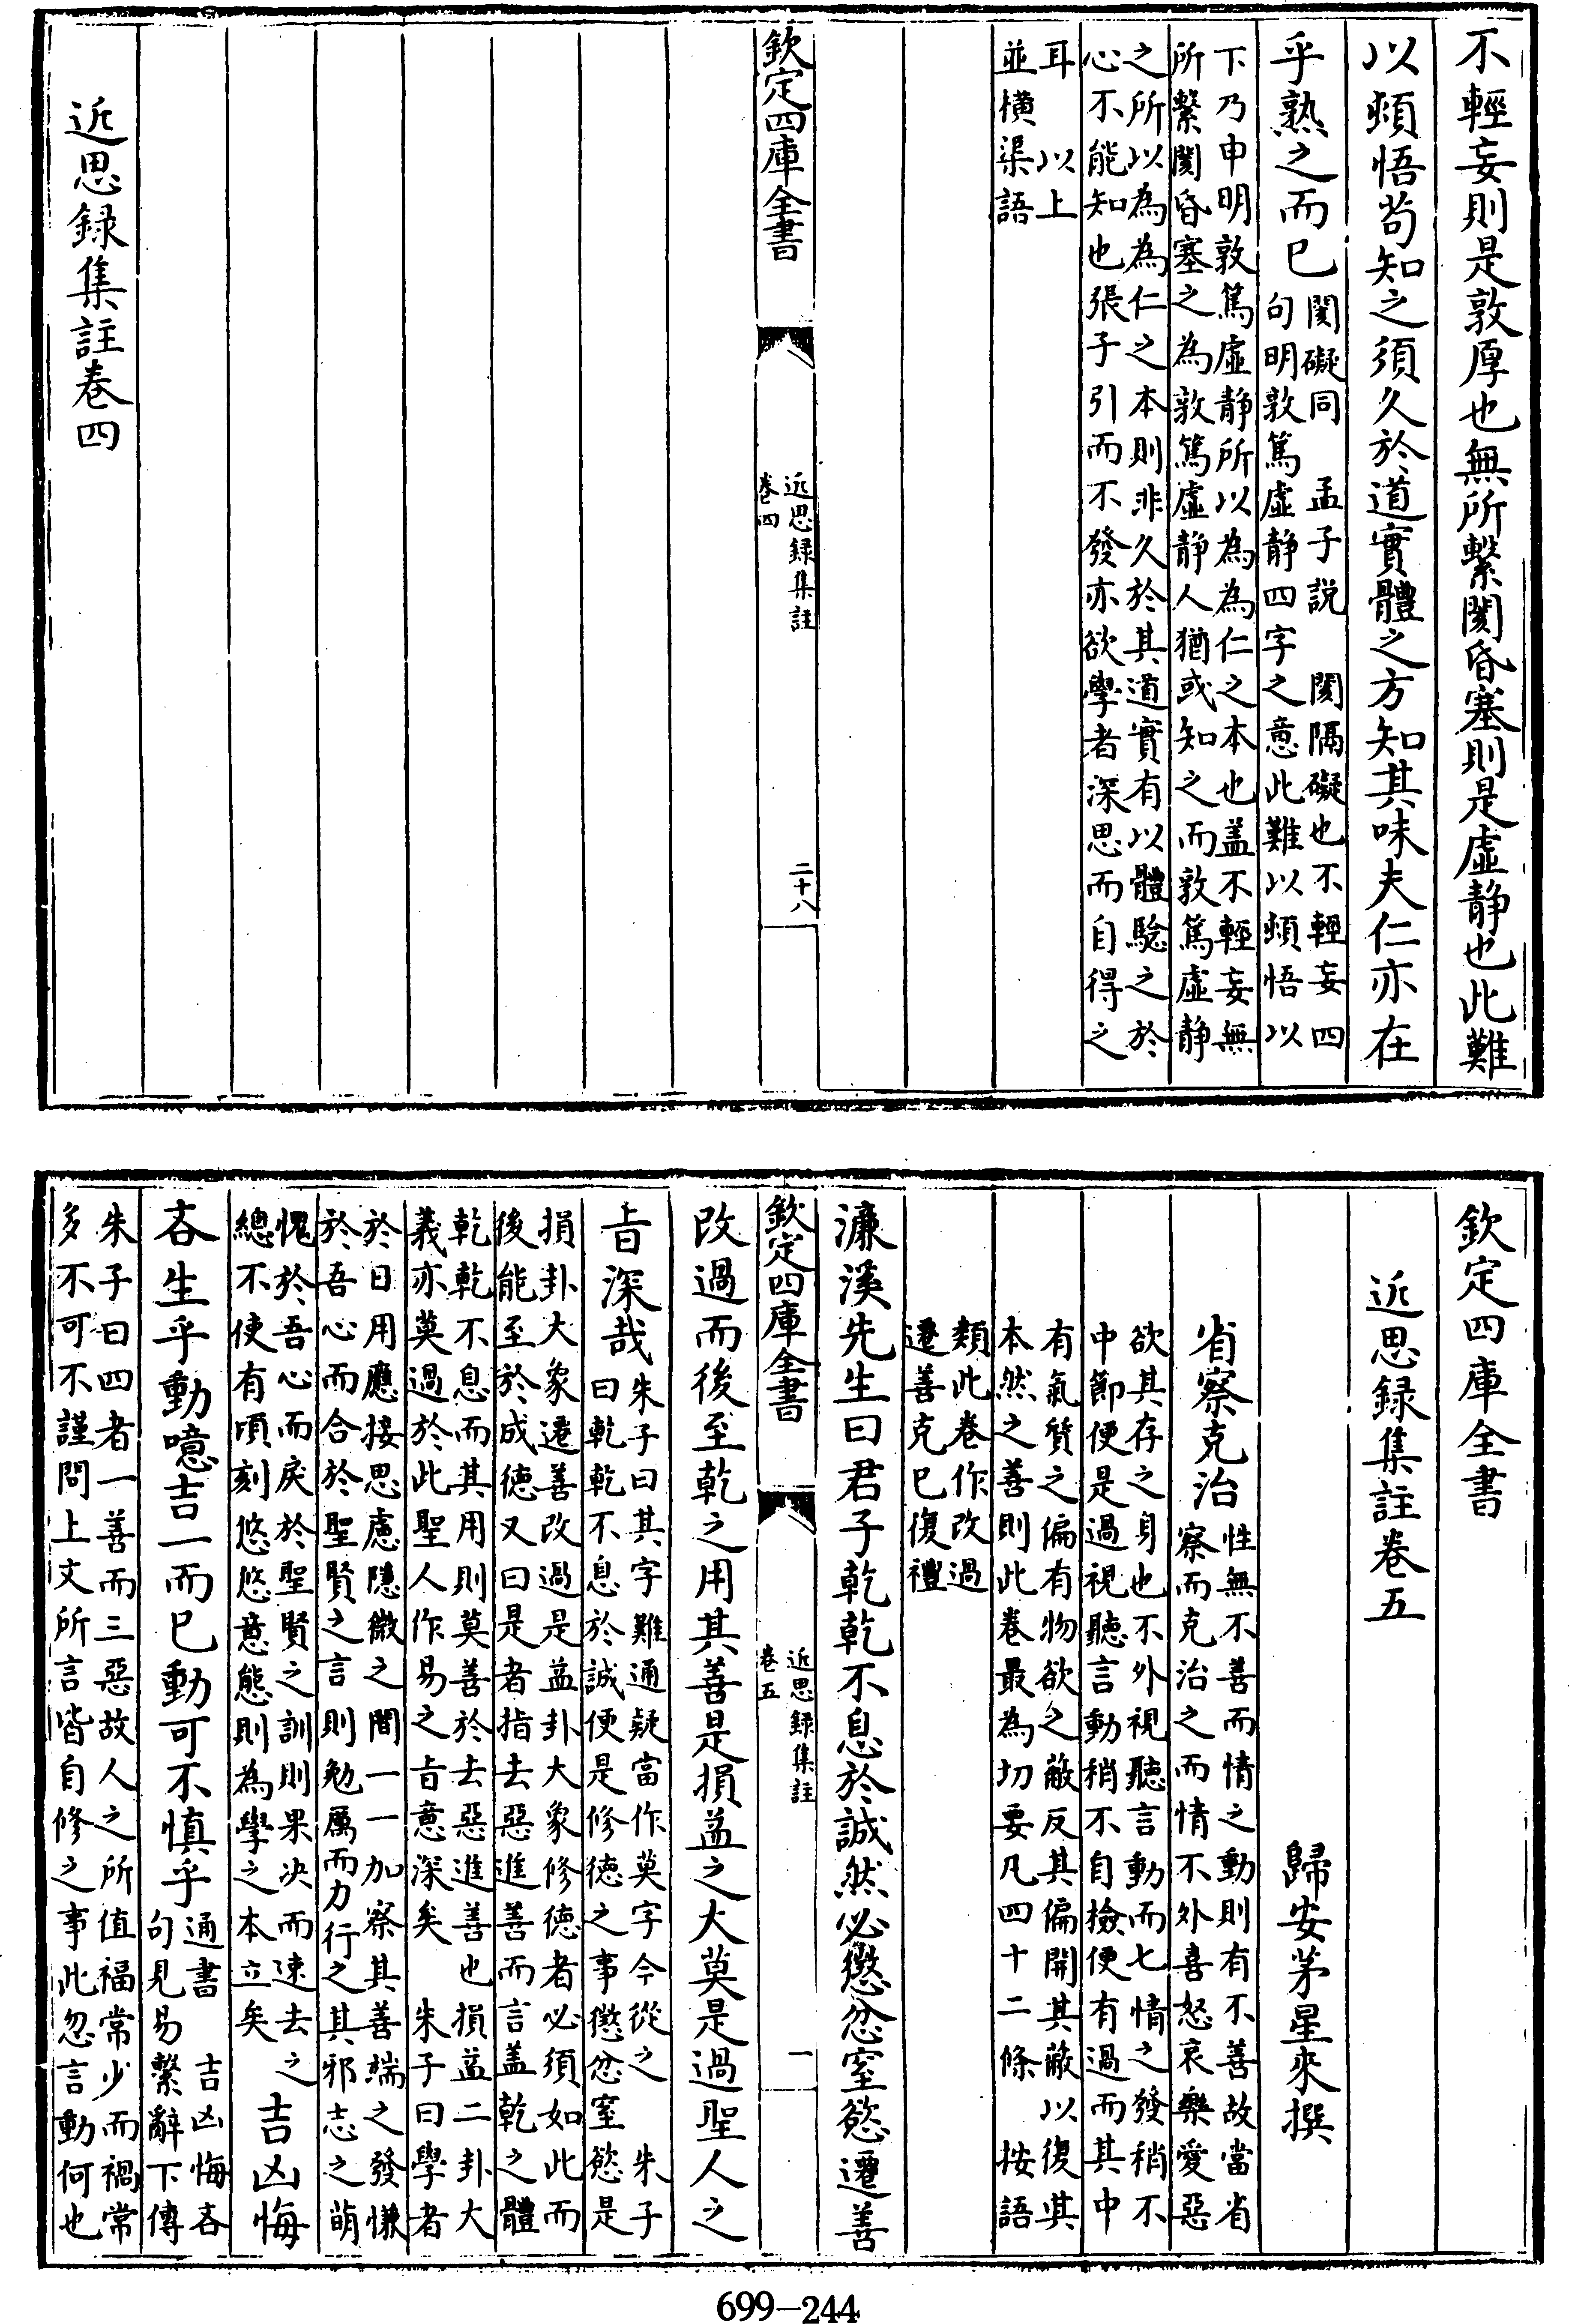 不輕妄則是敦厚也無所繫閡昏塞則是虛静也此難
以頓悟茍知之須久於道實體之方知其味夫仁亦在
乎熟之而已
閡礙同　孟子說　閡隔礙也不輕妄四
句明敦篤虛静四字之意此難以頓悟以
下乃申明敦篤虛静所以為為仁之本也盖不輕妄無
所繫閡昏塞之為敦篤虛静人猶或知之而敦篤虛静
之所以為為仁之本則非久於其道實有以體驗之於
心不能知也張子引而不發亦欲學者深思而自得之
耳　以上
並横渠語
欽定四庫全書
近思録集註
卷四
二十八
近思録集註卷四
欽定四庫全書
近思録集註卷五
歸安茅星來撰
省察克治
性無不善而情之動則有不善故當省
察而克治之而情不外喜怒哀樂愛惡
欲其存之身也不外視聽言動而七情之發稍不
中節便是過視聽言動稍不自撿便有過而其中
有氣質之偏有物欲之蔽反其偏開其蔽以復其
本然之善則此卷最為切要凡四十二條　按語
類此卷作改過
遷善克已復禮
濂溪先生曰君子乾乾不息於誠然必懲忿窒慾遷善
欽定四庫全書
近思録集註
卷五
一
改過而後至乾之用其善是損益之大莫是過聖人之
㫖深哉
朱子曰其字難通疑當作莫字今從之　朱子
曰乾乾不息於誠便是修徳之事懲忿窒慾是
損卦大象遷善改過是益卦大象修徳者必須如此而
後能至於成徳又曰是者指去惡進善而言盖乾之體
乾乾不息而其用則莫善於去惡進善也損益二卦大
義亦莫過於此聖人作易之㫖意深矣　朱子曰學者
於日用應接思慮隱微之間一一加察其善端之發慊
於吾心而合於聖賢之言則勉厲而力行之其邪志之萌
愧於吾心而戾於聖賢之訓則果决而速去之
總不使有頃刻悠悠意態則為學之本立矣
吉凶悔
吝生乎動噫吉一而已動可不慎乎
通書　吉凶悔吝
句見易繫辭下傳
朱子曰四者一善而三惡故人之所值福常少而禍常
多不可不謹問上文所言皆自修之事此忽言動何也
699-244